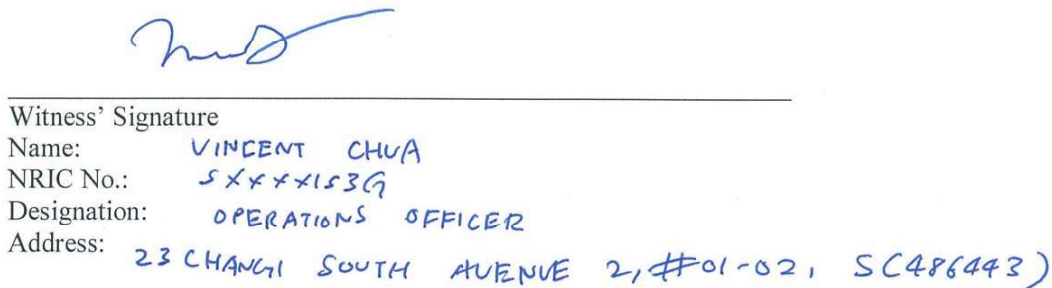 Witness' Signature
Name: VINCENT CHUA
NRIC No.: SXXXX153G
Designation: OPERATIONS OFFICER
Address: 23 CHANGI SOUTH AVENUE 2, #01-02, S(486443)